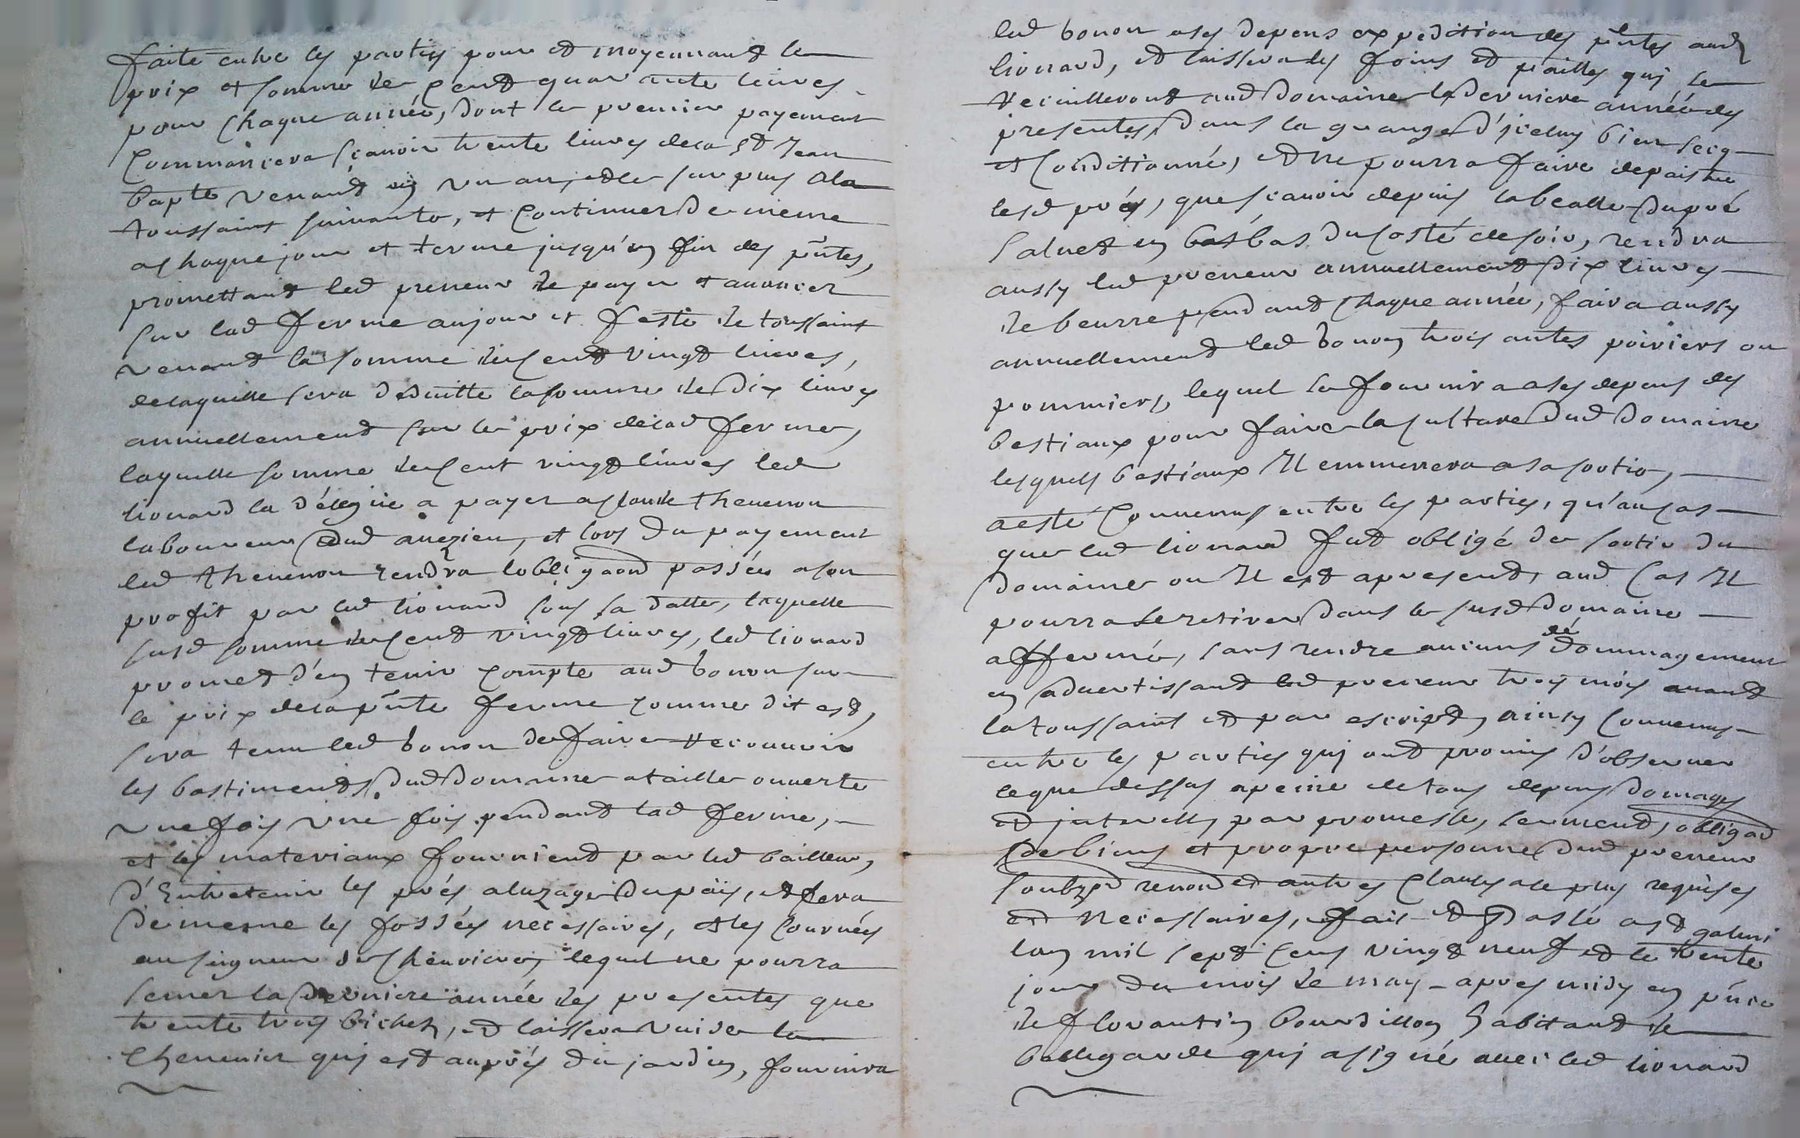 faite entre les parties pour et moyennant le
prix et somme de cent quarante livres
pour chaque année, dont le premier payement
commancera sçavoir trente livres de la St Jean
bapte venant en un an, et le surplus a la
toussaint suivante, et continuer de meme
a chaque jour et terme jusqu'en fin des pntes,
promettant led preneur de payer et avancer
sur lad ferme au jour et feste de toussaint
venant la somme de cent vingt livres,
de laquelle sera deduitte la somme de dix livres
annuellement sur le prix de lad ferme,
laquelle somme de cent vingt livres led
lionard la délégué a payer a claude thevenon
laboureur dud auezieu, et lors du payement
led thevenon rendra lobligaon passée a son
profit par led lionard sous sa datte, laquelle
susd somme de cent vingt livres, led lionard
promet d'en tenir compte aud bonon sur
le prix de la pnte ferme comme dit est,
sera tenu led bonon de faire recouvrir
les bastiments dud domaine a taille ouverte
une fois une fois pendant lad ferme,
et les materiaux fournient par led bailleur,
d'Entretenir les prés a luzage du païs, et fera
de meme les fossés necessaires, et les courvées
au seigneur de chenvieres, lequel ne pourra
semer la derniere année des presentes que
trente trois bichets, et laissera vuide la
chenevier qui est auprés du jardin, fournira
led bonon a ses depens expedition des pntes aud
lionard, et laissera les foins et pailles qui se
recuilleront aud domaine la derniere année des
presentes, dans la grange d'jceluy bien secq
et conditionné, et ne pourra faire depaistre
lesd prés, que scavoir depuis la dupré
en bas du costé de soir, rendra
aussy led preneur annuellement dix livres
de beurre pendant chaque année, faira aussy
annuellement led bonon trois antes poiriers ou
pommiers, lequel se fournira a ses depens des
bestiaux pour faire la culture dud domaine
lesquels bestiaux Il emmenera a sa sortie,
a esté convenus entre les parties, qu'au cas
que led lionard fut obligé de sortir du
domaine ou Il est apresent, aud cas Il
pourra se retirer dans le susd domaine
affermé, sans rendre aucuns dédommagement
en advertissant led preneur trois mois avant
la toussaint et par escript, ainsy convenus
entre les parties qui ont promis d'observer
ce que dessus a peine de tous depens domages
et jnterests par promesse, serment, obligaon
de biens et propre personne dud preneur
soubzon renon et autres clauses a ce plus requises
et Necessaires, fait et passé a st galmi
lan mil sept cens vingt neuf et le trente
jour du mois de may apres midy en pnce
de florantin bourdillon habitant de
bellegarde qui a signé avec led lionard